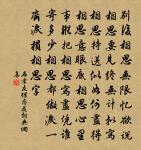 別後相思無限憶欲說
相思要見終無計擬寫
相思持送似如何盡得
相思意眼底相思心裏
事縱把相思寫盡憑誰
寄多少相思都做淚一
齊淚損相思字
石孝友